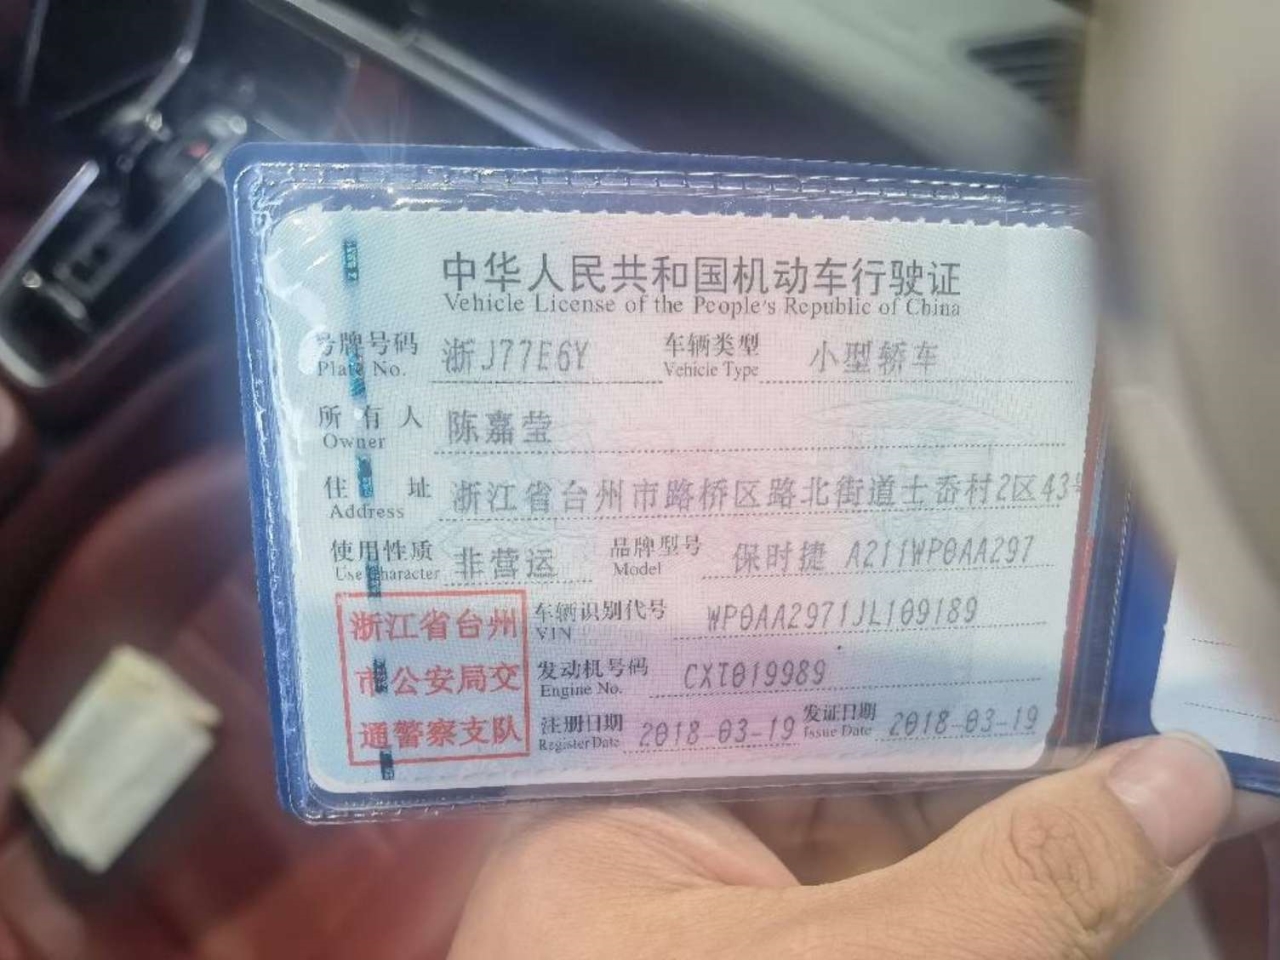 中华人民共和国机动车行驶证
Vehicle License of the People's Republic of China
号牌号码 浙J77E6Y 车辆类型 小型轿车
Plate No. Vehicle Type
所有人 陈嘉莹
Owner
住址 浙江省台州市路桥区路北街道士岙村2区43号
Address
使用性质 非营运 品牌型号 保时捷 A211WP0AA297
Use Character Model
浙江省台州 车辆识别代号 WP0AA2971JL109189
VIN
市公安局交 发动机号码 CXT019989
Engine No.
通警察支队 注册日期 2018-03-19 发证日期 2018-03-19
Register Date Issue Date